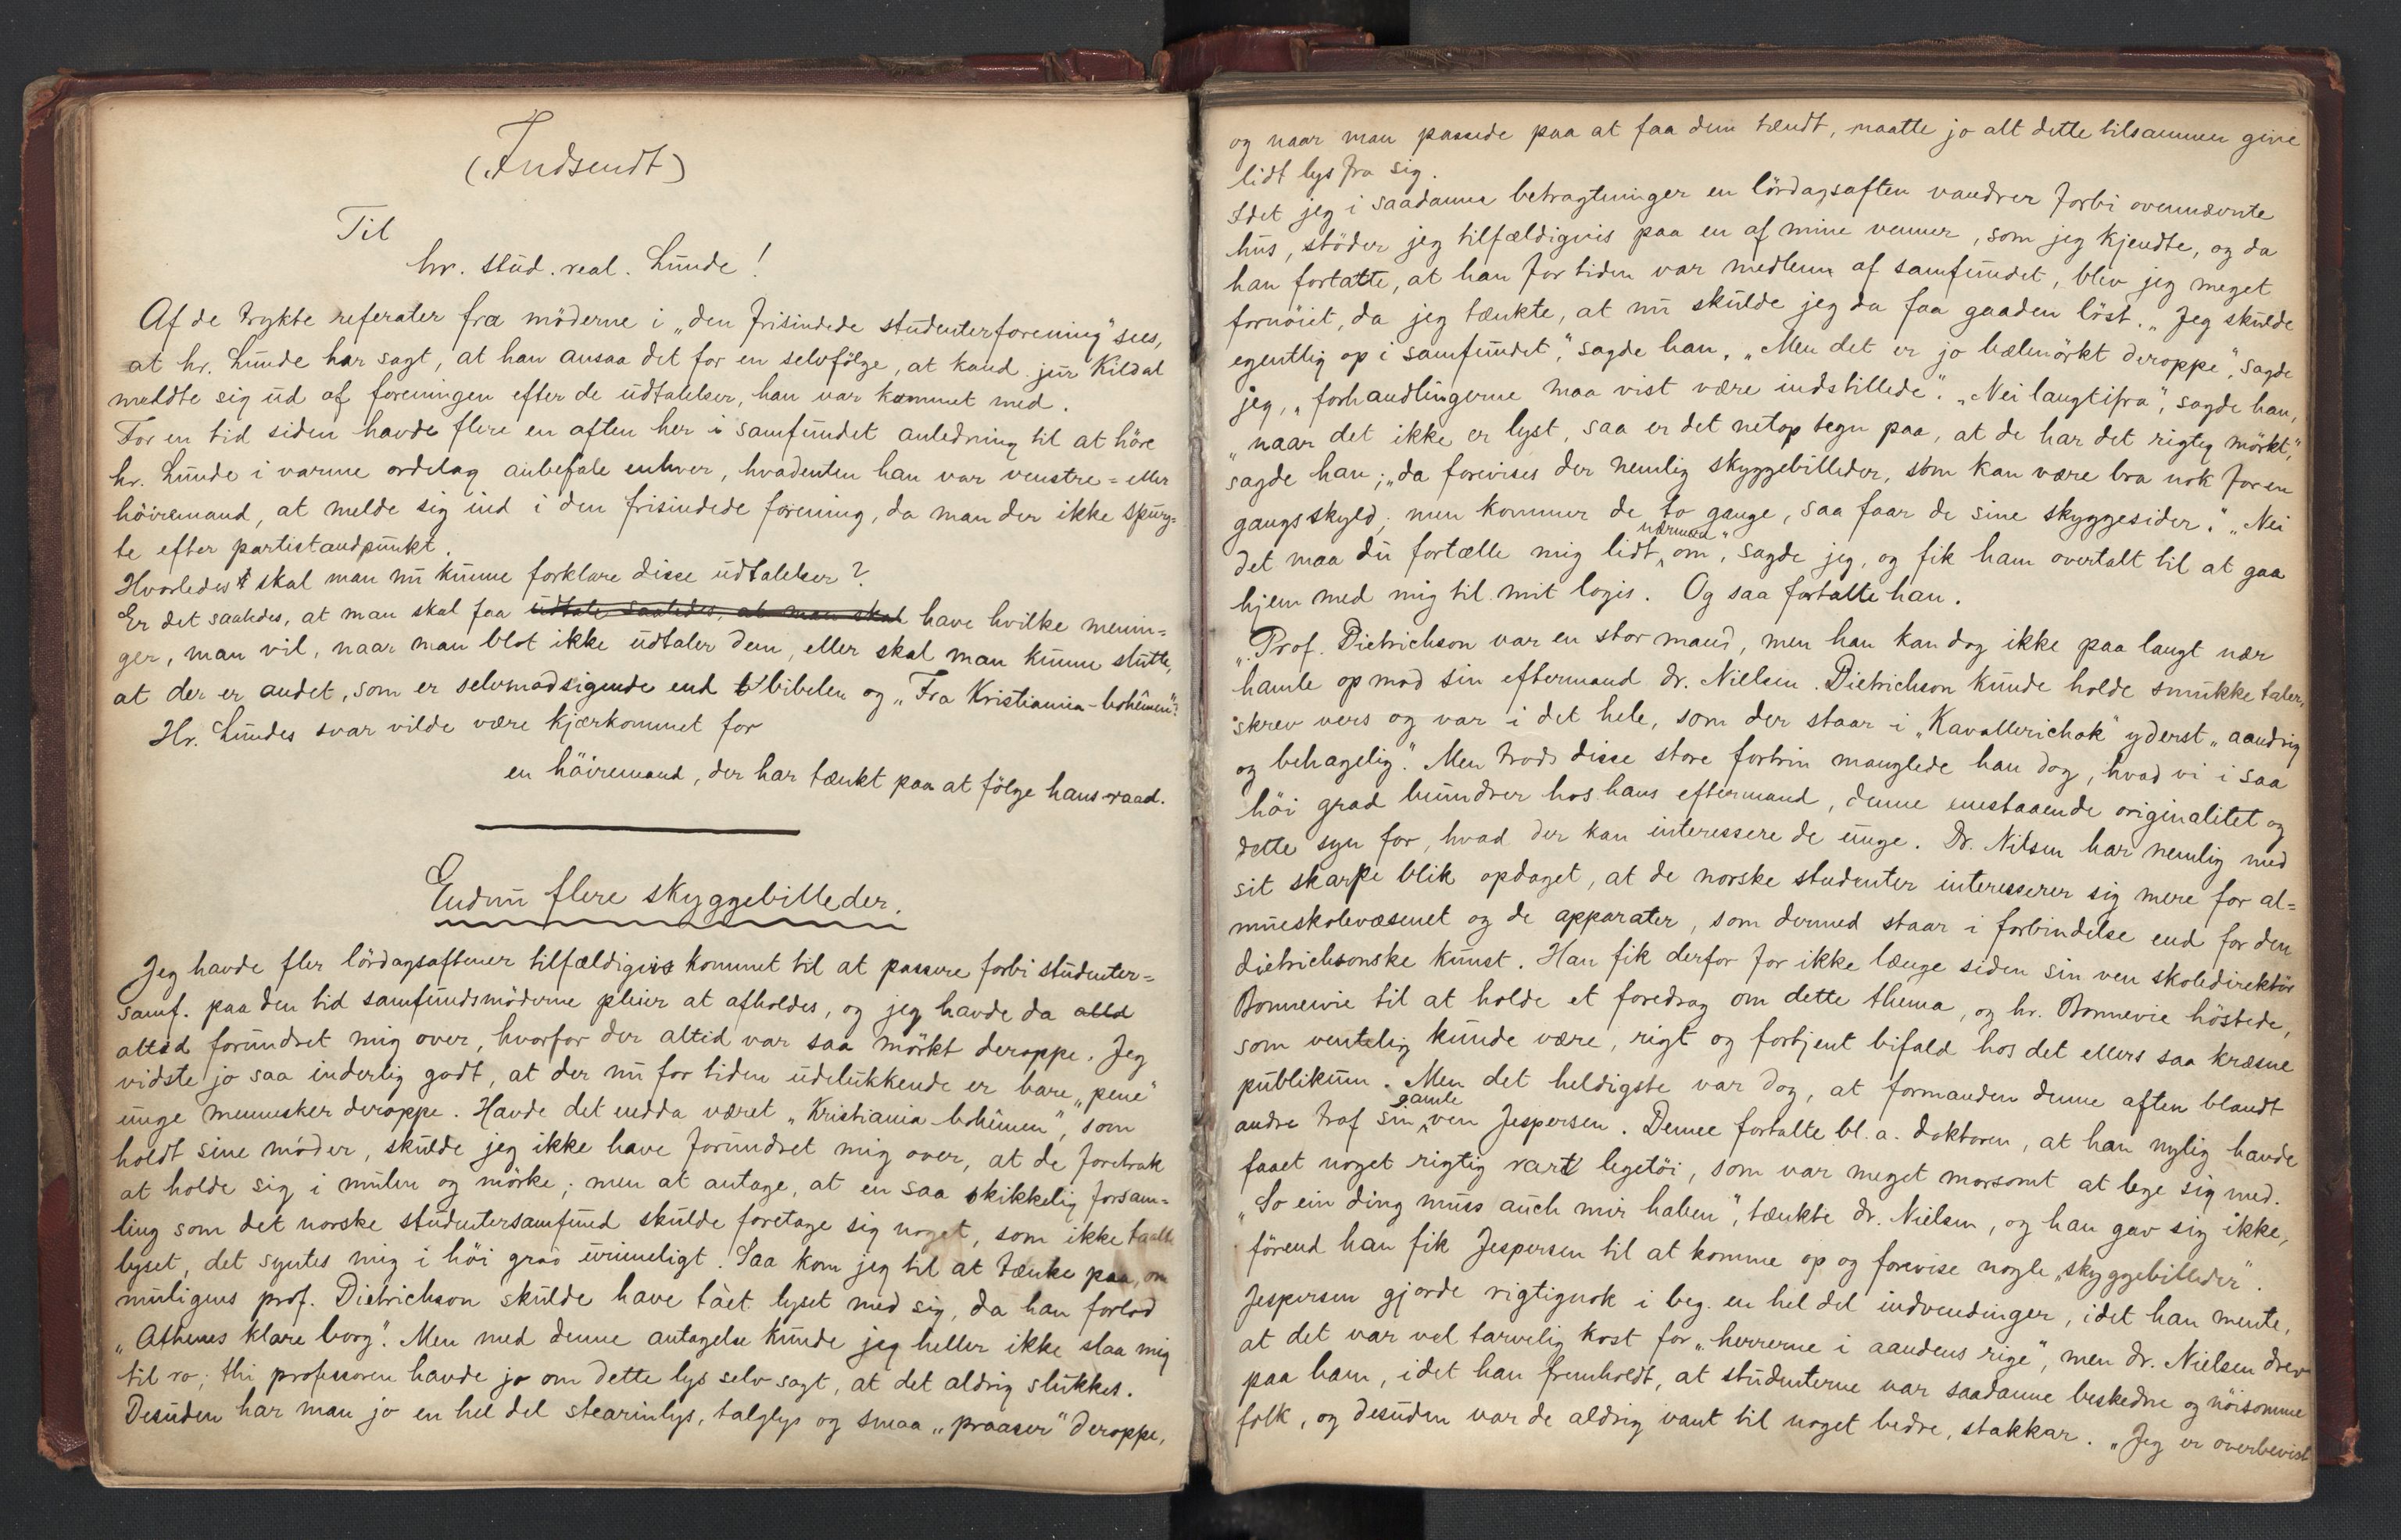 (Indsendt)
Til
hr. stud. real. Lunde!
Af de trykte referater fra möderne i „den frisindede studenterforening" sees,
at hr. Lunde har sagt, at han ansaa det for en selvfölge, at kand. jur Kildal
meldte sig ud af foreningen efter de udtalelser, han var kommet med.
For en tid siden havde flere en aften her i samfundet anledning til at höre
hr. Lunde i varme ordelag anbefale enhver, hvadenten han var venstre= eller
höiremand, at melde sig ind i den frisindede forening, da man der ikke spurg=
te efter partistandpunkt.
Hvorledes skal man nu kunne forklare disse udtalelser?
Er det saaledes, at man skal faa udtale saaledes, at man skal have hvilke menin=
ger, man vil, naar man blot ikke udtaler dem, eller skal man kunne slutte,
at der er andet, som er selvmodsigende end bibelen og „Fra Kristiania-bohêmen"?
Hr. Lundes svar vilde være kjærkommet for
en höiremand, der har tænkt paa at fölge hans raad.
Endnu flere skyggebilleder.
Jeg havde fler lördagsaftener tilfældigvis kommet til at passere forbi studenter=
samf. paa den tid samfundsmöderne pleier at afholdes, og jeg havde da alld
altid forundret mig over, hvorfor der altid var saa mörkt deroppe. Jeg
vidste jo saa inderlig godt, at der nu for tiden udelukkende er bare „pene"
unge mennesker deroppe. Havde det endda været „Kristiania-bohêmen", som
holdt sine möder, skulde jeg ikke have forundret mig over, at de foretrak
at holde sig i mulm og mörke; men at antage, at en saa skikkelig forsam=
ling som det norske studentersamfund skulde foretage sig noget, som ikke taalte
lyset, det syntes mig i höi grad urimeligt. Saa kom jeg til at tænke paa, om
muligens prof. Dietrichson skulde have taet lyset med sig, da han forlod
„Athenes klare borg". Men med denne antagelse kunde jeg heller ikke slaa mig
til ro; thi professoren havde jo om dette lys selv sagt, at det aldrig slukkes.
Desuden har man jo en hel del stearinlys, talglys og smaa „praaser" deroppe,
og naar man passede paa at faa dem tændt, maatte jo alt dette tilsammen give
lidt lys fra sig.
Idet jeg i saadanne betragtninger en lördagsaften vandrer forbi ovennævnte
hus, stöder jeg tilfældigvis paa en af mine venner, som jeg kjendte, og da
han fortalte, at han for tiden var medlem af samfundet, blev jeg meget
fornöiet, da jeg tænkte, at nu skulde jeg da faa gaaden löst. „Jeg skulde
egentlig op i samfundet", sagde han. „Men det er jo bælmörkt deroppe", sagde
jeg, „forhandlingerne maa vist være indstillede". „Nei langtifra", sagde han,
„naar det ikke er lyst, saa er det netop tegn paa, at de har det rigtig mörkt",
sagde han; „da forevises der nemlig skyggebilleder, som kan være bra nok for en
gangs skyld; men kommer de to gange, saa faar de sine skyggesider." „Nei
det maa du fortælle mig lidt nærmere om", sagde jeg, og fik ham overtalt til at gaa
hjem med mig til mit logis. Og saa fortalte han.
„Prof. Dietrichson var en stor mand, men han kan dog ikke paa langt nær
hamle op mod sin eftermand dr. Nielsen. Dietrichson kunde holde smukke taler,
skrev vers og var i det hele, som der staar i „Kavallerichok" yderst „aandrig
og behagelig". Men trods disse store fortrin manglede han dog, hvad vi i saa
höi grad bundrer hos hans eftermand, denne enestaaende originalitet og
dette syn for, hvad der kan interessere de unge. Dr. Nilsen har nemlig med
sit skarpe blik opdaget, at de norske studenter interesserer sig mere for al=
mueskolevæsenet og de apparater, som dermed staar i forbindelse end for den
dietrichsonske kunst. Han fik derfor for ikke længe siden sin ven skoledirektör
Bonnevie til at holde et foredrag om dette thema, og hr. Bonnevie höstede,
som ventelig kunde være, rigt og fortjent bifald hos det ellers saa kræsne
publikum. Men det heldigste var dog, at formanden denne aften blandt
andre traf sin gamle ven Jespersen. Denne fortalte bl. a. doktoren, at han nylig havde
faaet noget rigtig rart legetöi, som var meget morsomt at lege sig med.
„So ein ding muss auch mir haben", tænkte dr. Nielsen, og han gav sig ikke,
förend han fik Jespersen til at komme op og forevise nogle „skyggebilleder".
Jespersen gjorde rigtignok i beg. en hel del indvendinger, idet han mente,
at det var vel tarvelig kost for „herrerne i aandens rige", men dr. Nielsen drev
paa ham, idet han fremholdt, at studenterne var saadanne beskedne og nöisomme
folk, og desuden var de aldrig vant til noget bedre, stakkar. „Jeg er overbevist